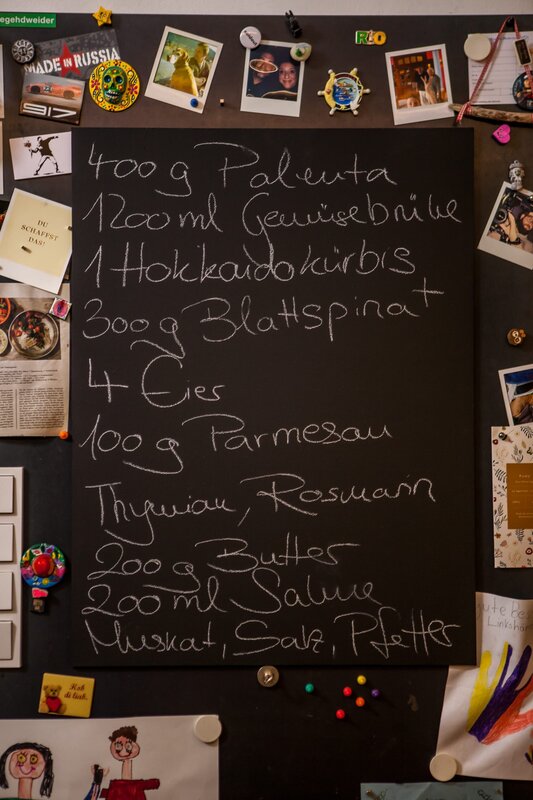 egehdweider
MADE IN RUSSIA
917
RIO
DU
SCHAFFST
DAS!
400g Polenta
1200ml Gemüsebrühe
1 Hokkaidokürbis
300g Blattspinat
4 Eier
100g Parmesan
Thymian, Rosmarin
200g Butter
200ml Sahne
Muskat, Salz, Pfeffer
Hab
di lieb.